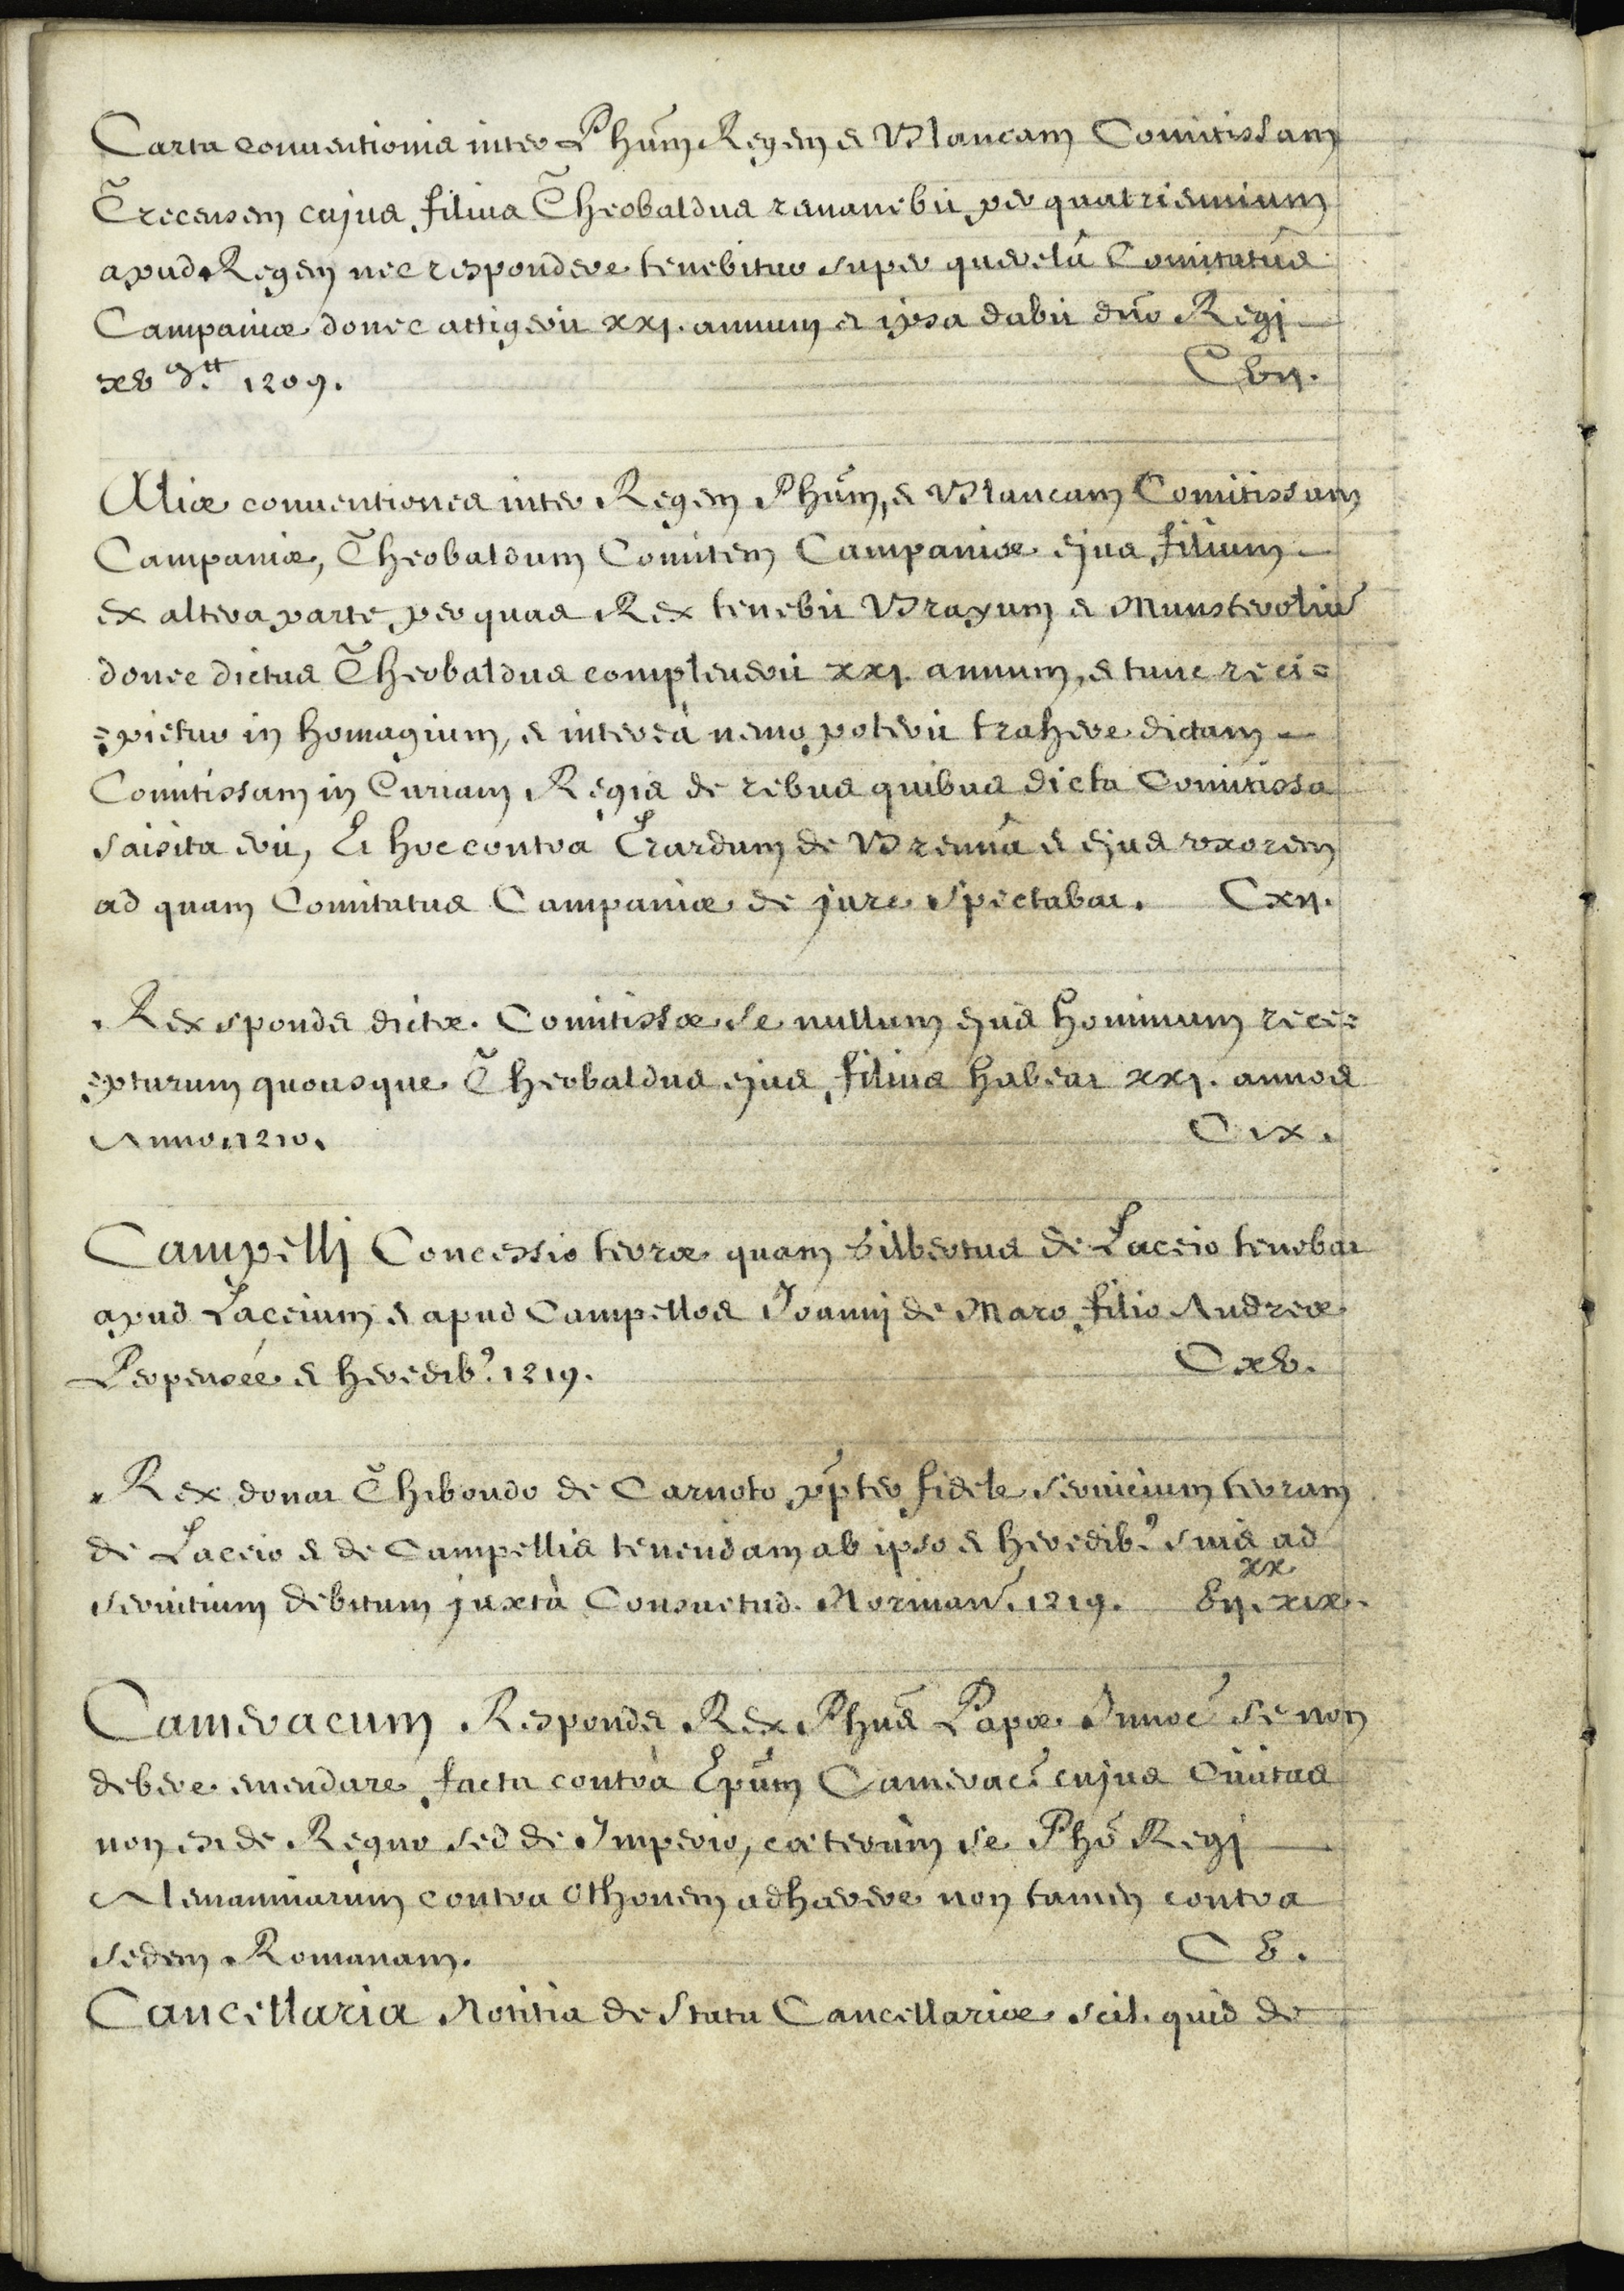 Carta conventionis inter Phum Regem et Blancam Comitissam
Trecensem cujus filius Theobaldus remanebit per quatriennium
apud Regem nec respondere tenebitur super querelâ Comitatus
Campaniæ donec attigerit xxj. annum et ipsa dabit dno Regj
xv m. tt 1209. Cvij.
Aliæ conventiones inter Regem Phum, et Blancam Comitissam
Campaniæ, Theobaldum Comitem Campaniæ ejus filium
ex altera parte, per quas Rex tenebit Brayum et Munsteroliũ
donec dictus Theobaldus compleverit xxj. annum, et tunc reci=
=pietur in homagium, et intereà nemo poterit trahere dictam
Comitissam in Curiam Regis de rebus quibus dicta Comitissa
saisita erit, Et hoc contrà Erardum de Brennâ et ejus uxorem
ad quam Comitatus Campaniæ de jure spectabat. Cxij.
Rex spondet dictæ Comitissæ se nullum ejus hominum rece=
=pturum quousque Theobaldus ejus filius habeat xxj. annos
Anno 1210. Cix.
Campellj Concessio terræ quam Gilbertus de Laceio tenebat
apud Laceium et apud Campellos Joannj de Maro filio Andreæ
Perpensée et heredib? 1219. Cxv.
Rex donat Thiboudo de Carnoto ppter fidele servicium terram
de Laceio et de Campellis tenendam ab ipso et heredib? suis ad
servitium debitum juxtà Consuetud. Norman. 1219. vij.xx xix.
Cameracum Respondet Rex Phus Papæ Innoc. se non
debere emendare facta contrà Epum Camerac. cujus Civitas
non est de Regno sed de Imperio, cæterùm se Pho Regj
Alemanniarum contra Othonem adhærere non tamen contra
sedem Romanam. C v.
Cancellaria Notitia de Statu Cancellariæ scil. quid de